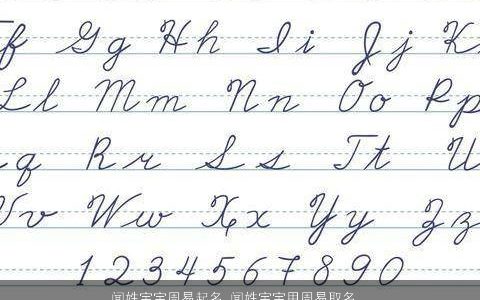 f Gg Hh Ii Jj K
Ll Mm Nn Oo Pp
q Rr Ss Tt U
Vv Ww Xx Yy Zz
1 2 3 4 5 6 7 8 9 0
闻姓宝宝周易起名 闻姓宝宝用周易取名